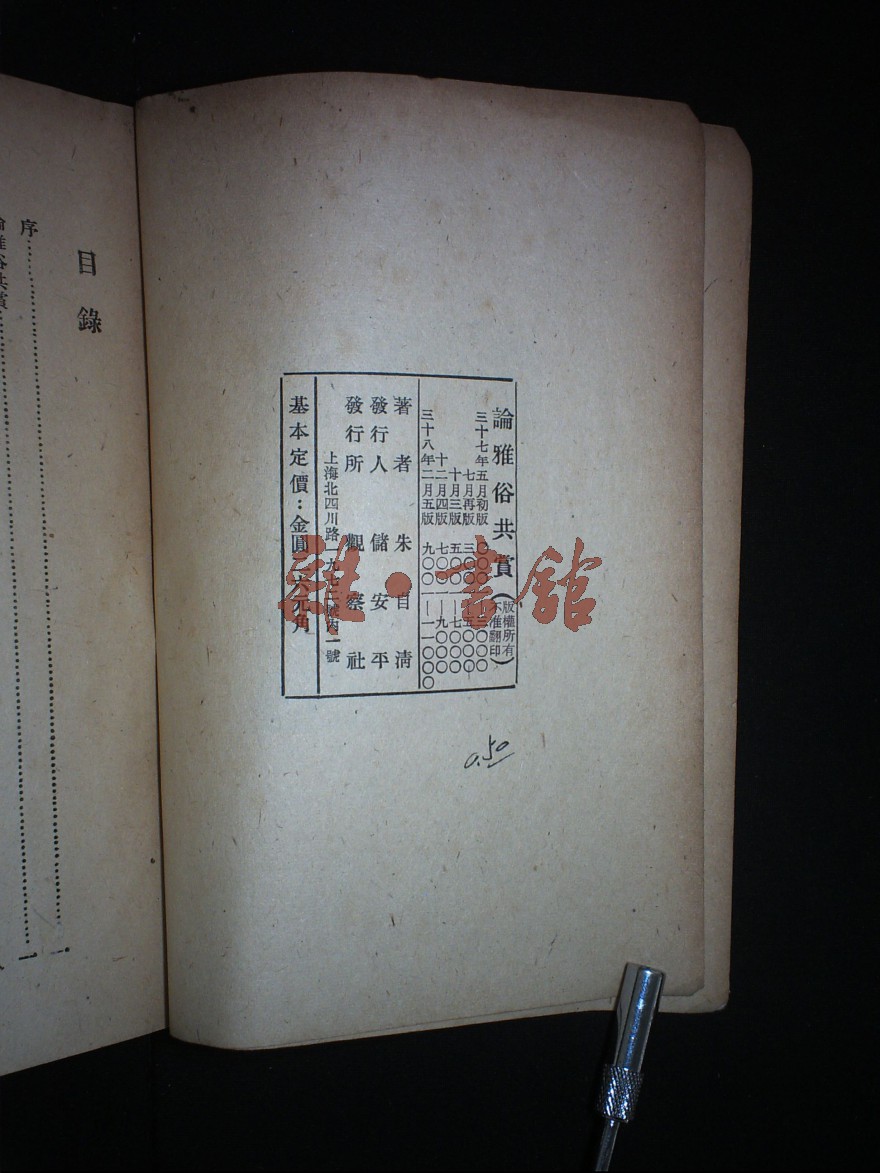 論雅俗共賞(版權所有不准翻印)
三十七年五月初版 〇〇〇一—三〇〇〇
七月再版 三〇〇一—五〇〇〇
十月三版 五〇〇一—七〇〇〇
十二月四版 七〇〇一—九〇〇〇
三十八年二月五版 九〇〇一—一一〇〇〇
著者 朱自清
發行人 儲安平
發行所 觀察社
上海北四川路一九七三號內一號
基本定價:金圓 六元角
0.50
目錄
序
論雅俗共賞
一
書館